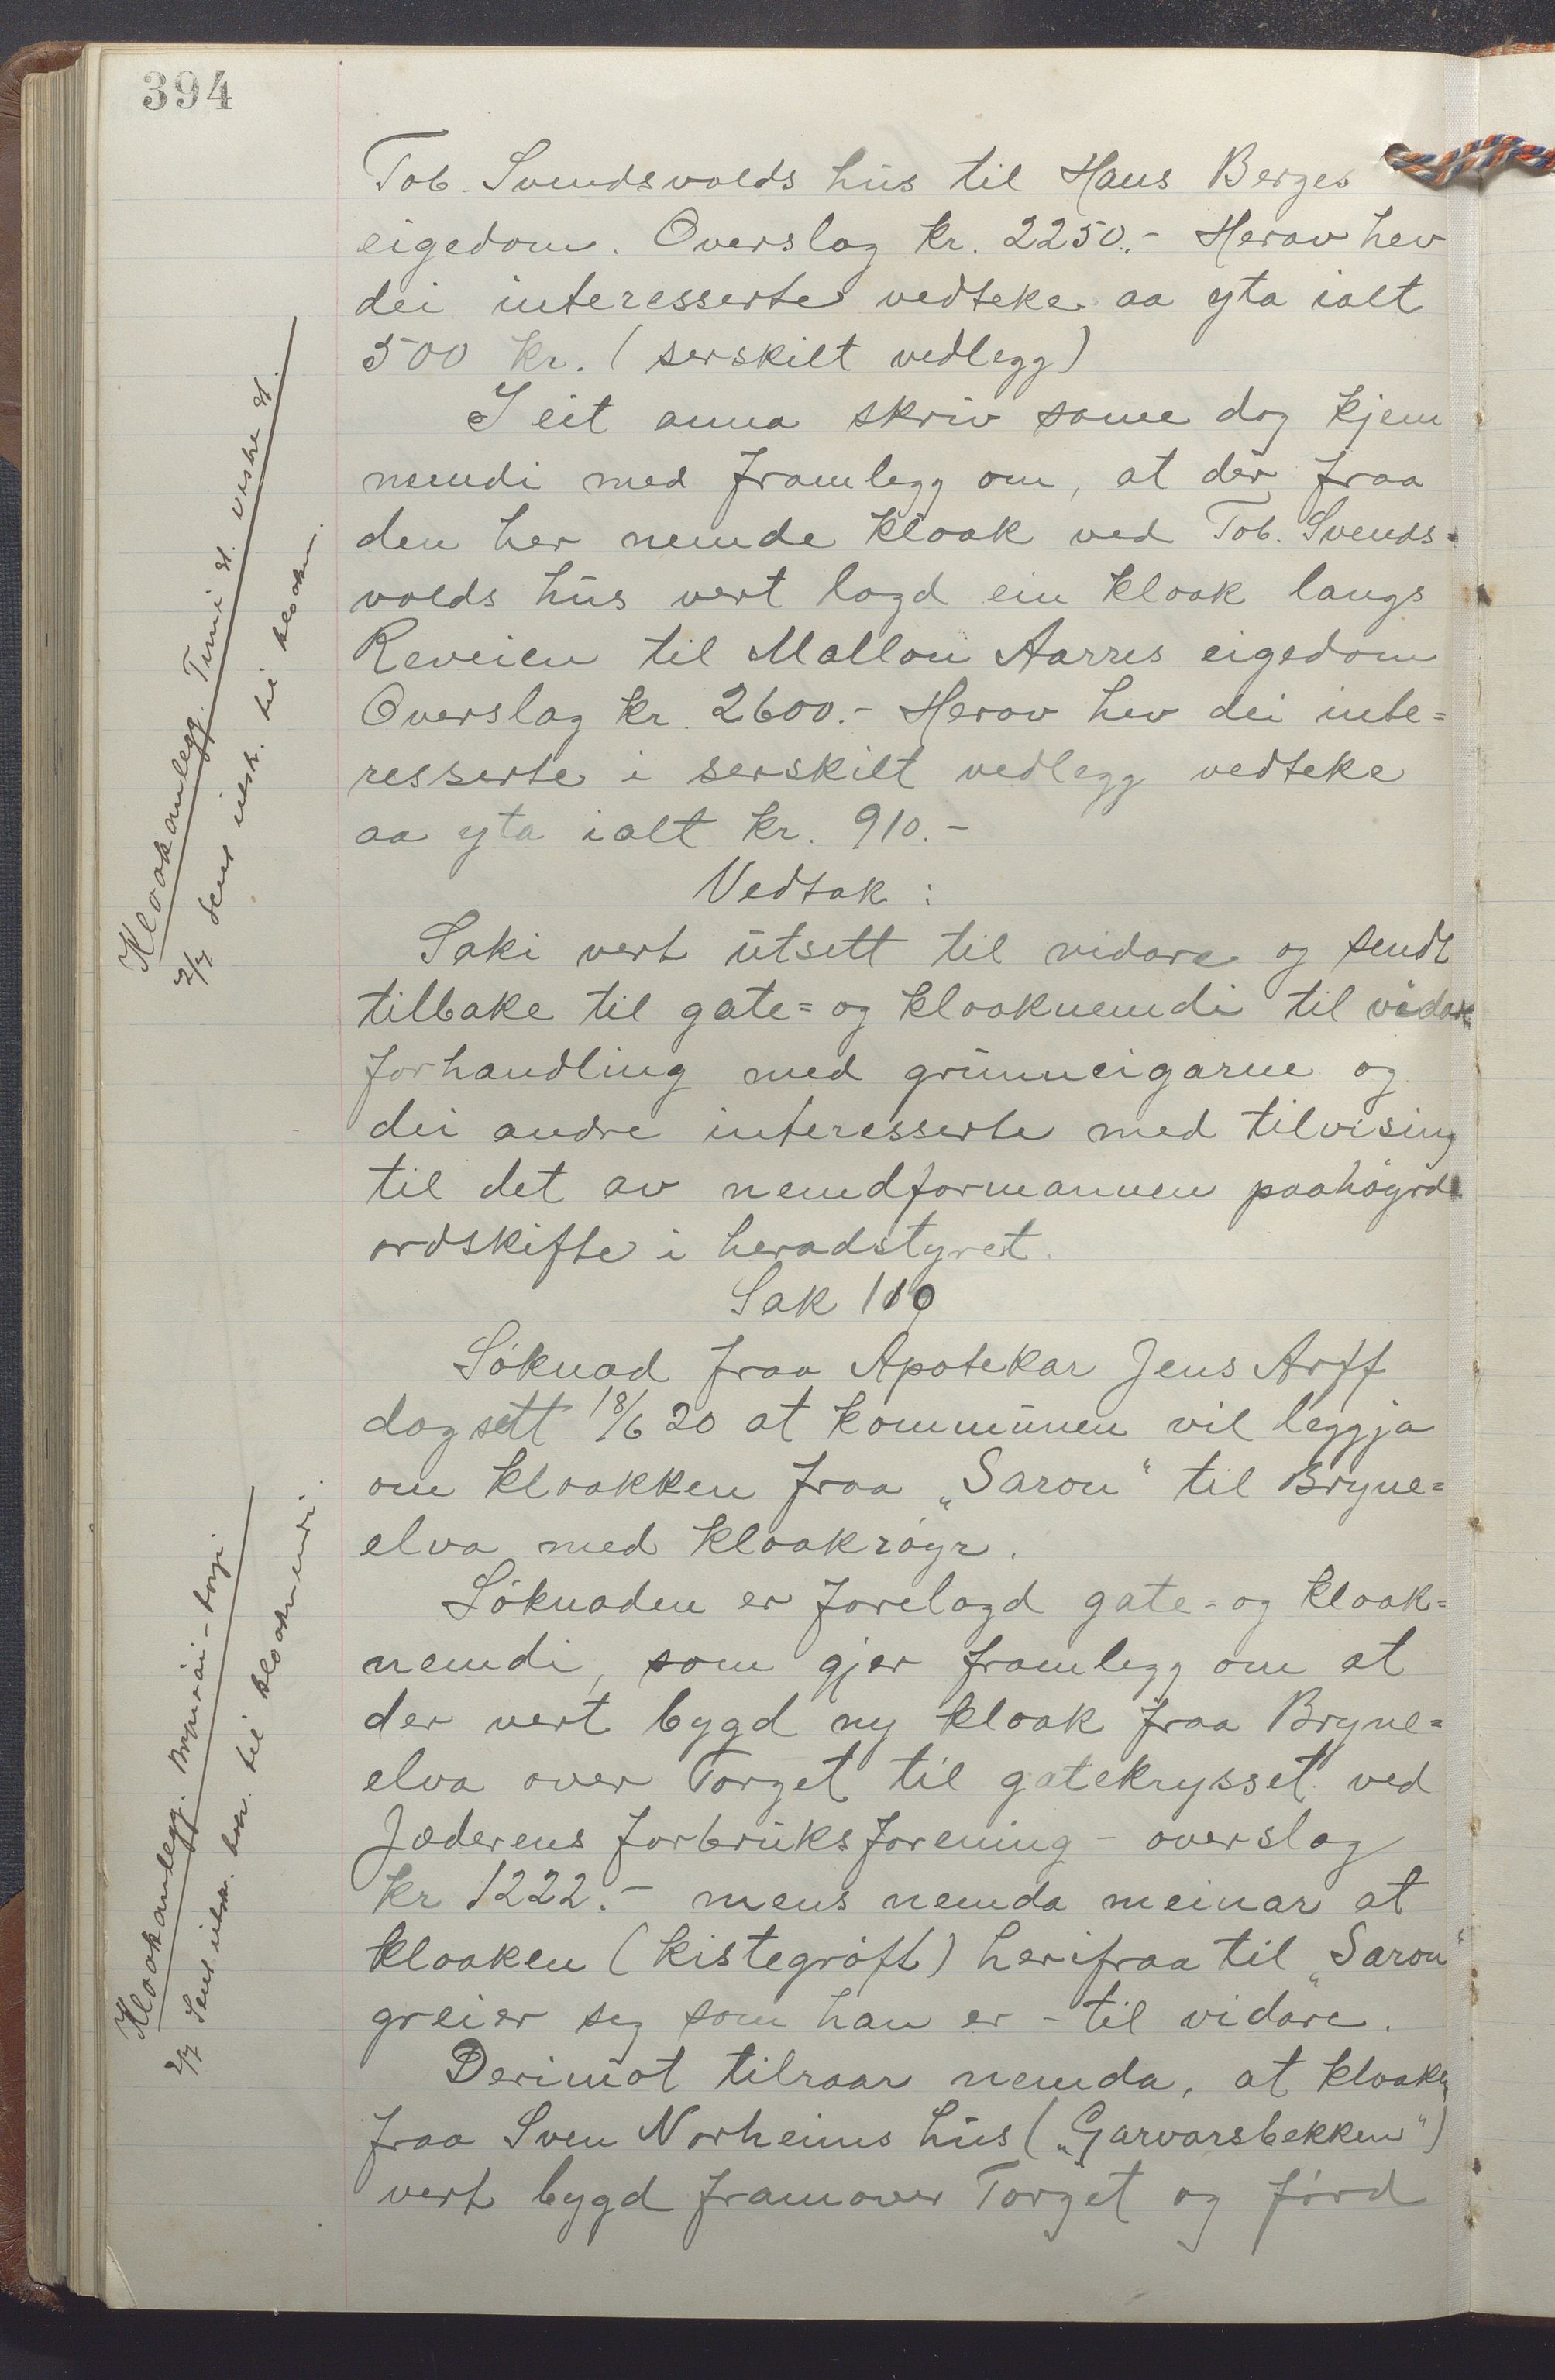 394
Tob. Svendsvolds hus til Hans Berges
eigedom. Overslag kr. 2250.- Herav hev
dei interesserte vedteke aa yta ialt
500 kr. (serskilt vedlegg)
I eit anna skriv same dag kjem
nemdi med framlegg om, at der fraa
den her nemde kloak ved Tob. Svends-
volds hus vert lagd ein kloak langs
Reveien til Mallon Aarres eigedom
Overslag kr. 2600.- Herav hev dei inte=
resserte i serskilt vedlegg vedteke
aa yta ialt kr. 910.-
Vedtak:
Saki vert utsett til vidare og sendt
tilbake til gate= og kloaknemdi til vidare
forhandling med grunneigarne og
dei andre interesserte med tilvising
til det av nemdformannen paahøyrde
ordskifte i heradstyret.
Sak 110
Søknad fraa Apotekar Jens Arff
dagsett 18/6 20 at kommunen vil leggja
om kloakken fraa „Saron“ til Bryne=
elva med kloakrøyr.
Søknaden er forelagd gate= og kloak=
nemdi, som gjer framlegg om at
der vert bygd ny kloak fraa Bryne=
elva over Torget til gatekrysset ved
Jæderens forbruksforening - overslag
kr 1222.- mens nemda meinar at
kloaken (kistegrøft) herifraa til „Saron“
greier seg som han er - til vidare.
Derimot tilraar nemda, at kloaken
fraa Sven Norheims hus („Garvarsbekken“)
vert bygd framover Torget og førd
Kloakanlegg. Time st. vestre st.
2/7 Sens utsk. til kloakn.
Kloakanlegg.
2/7 Sens utsk. til kloaknemdi.